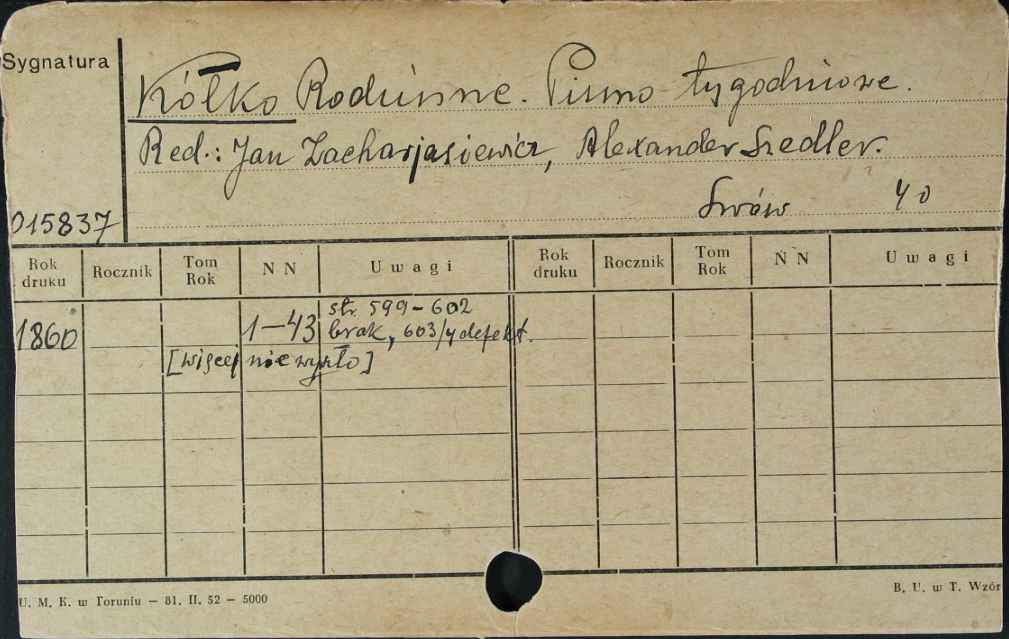 Sygnatura
Kółko Rodzinne. Pismo tygodniowe.
Red.: Jan Zacharjasiewicz, Alexander Szedler.
Lwów 40
015837
Rok druku Rocznik Tom Rok NN Uwagi Rok druku Rocznik Tom Rok NN Uwagi
str. 599-602
1860 1-43 brak, 603/4 defekt.
[więcej nie wyszło]
U. M. K. w Toruniu - 81. II. 52 - 5000
B. U. w T. Wzór